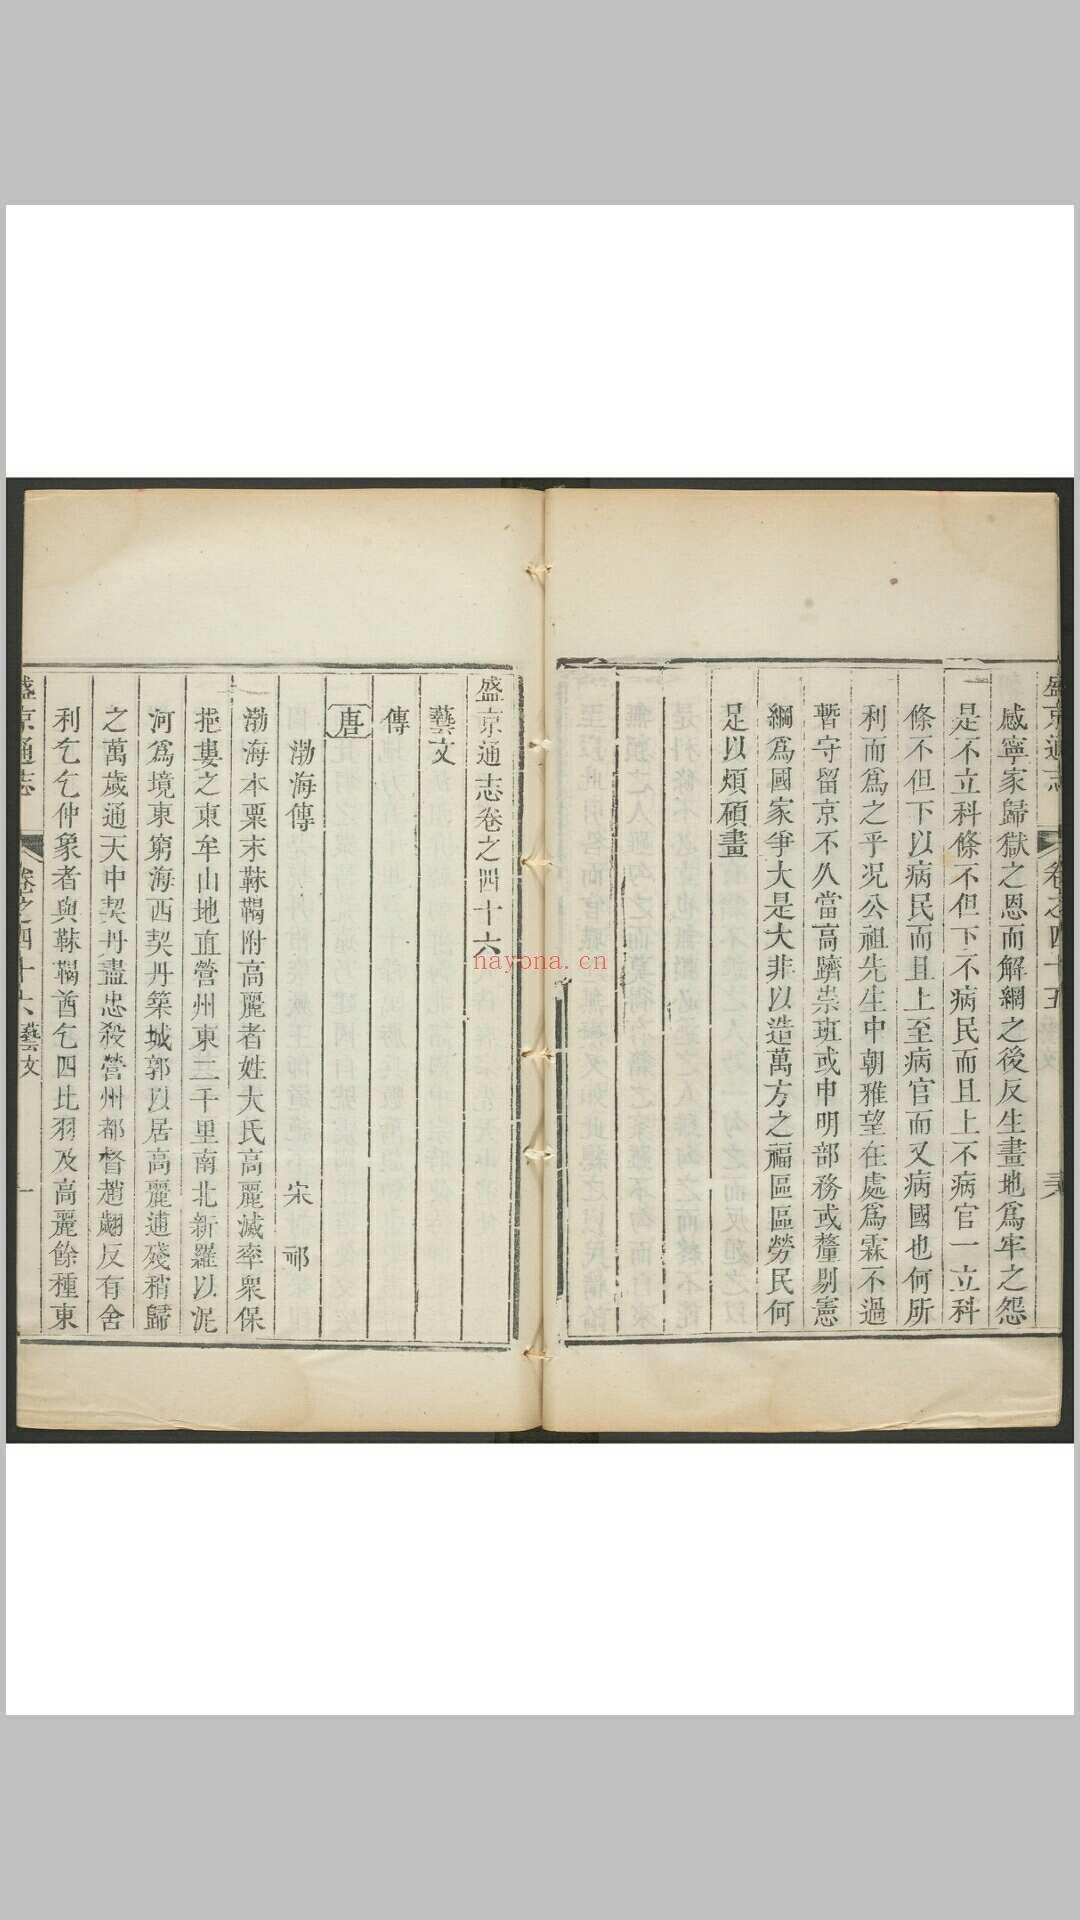 盛京通志
卷之四十五
感寧家歸獄之恩而解網之後反生畫地爲牢之怨
是不立科條不但下不病民而且上不病官一立科
條不但下以病民而且上至病官而又病國也何所
利而爲之乎况公祖先生中朝雅望在處爲霖不過
暫守留京不久當高躋崇班或申明部務或釐剔憲
綱爲國家爭大是大非以造萬方之福區區勞民何
足以煩碩畫
盛京通志卷之四十六
藝文
傳
唐
渤海傳 宋祁
渤海本粟末靺鞨附高麗者姓大氏高麗滅率衆保
挹婁之東牟山地直營州東二千里南北新羅以泥
河爲境東窮海西契丹築城郭以居高麗逋殘稍歸
之萬歲通天中契丹盡忠殺營州都督趙翽反有舍
利乞乞仲象者與靺鞨酋乞四比羽及高麗餘種東
盛京通志
卷之四十六 藝文
一
nayona.cn